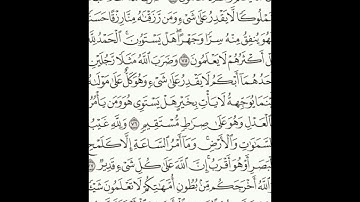 مَّمْلُوكًا لَّا يَقْدِرُ عَلَىٰ شَىْءٍ وَمَن رَّزَقْنَٰهُ مِنَّا رِزْقًا حَسَنًا
فَهُوَ يُنفِقُ مِنْهُ سِرًّا وَجَهْرًا هَلْ يَسْتَوُۥنَ ٱلْحَمْدُ لِلَّهِ
بَلْ أَكْثَرُهُمْ لَا يَعْلَمُونَ ٧٥ وَضَرَبَ ٱللَّهُ مَثَلًا رَّجُلَيْنِ
أَحَدُهُمَآ أَبْكَمُ لَا يَقْدِرُ عَلَىٰ شَىْءٍ وَهُوَ كَلٌّ عَلَىٰ مَوْلَىٰهُ
أَيْنَمَا يُوَجِّههُّ لَا يَأْتِ بِخَيْرٍ هَلْ يَسْتَوِى هُوَ وَمَن يَأْمُرُ
بِٱلْعَدْلِ وَهُوَ عَلَىٰ صِرَٰطٍ مُّسْتَقِيمٍ ٧٦ وَلِلَّهِ غَيْبُ
ٱلسَّمَٰوَٰتِ وَٱلْأَرْضِ وَمَآ أَمْرُ ٱلسَّاعَةِ إِلَّا كَلَمْحِ
ٱلْبَصَرِ أَوْ هُوَ أَقْرَبُ إِنَّ ٱللَّهَ عَلَىٰ كُلِّ شَىْءٍ قَدِيرٌ ٧٧
وَٱللَّهُ أَخْرَجَكُم مِّنۢ بُطُونِ أُمَّهَٰتِكُمْ لَا تَعْلَمُونَ شَيْـًٔا